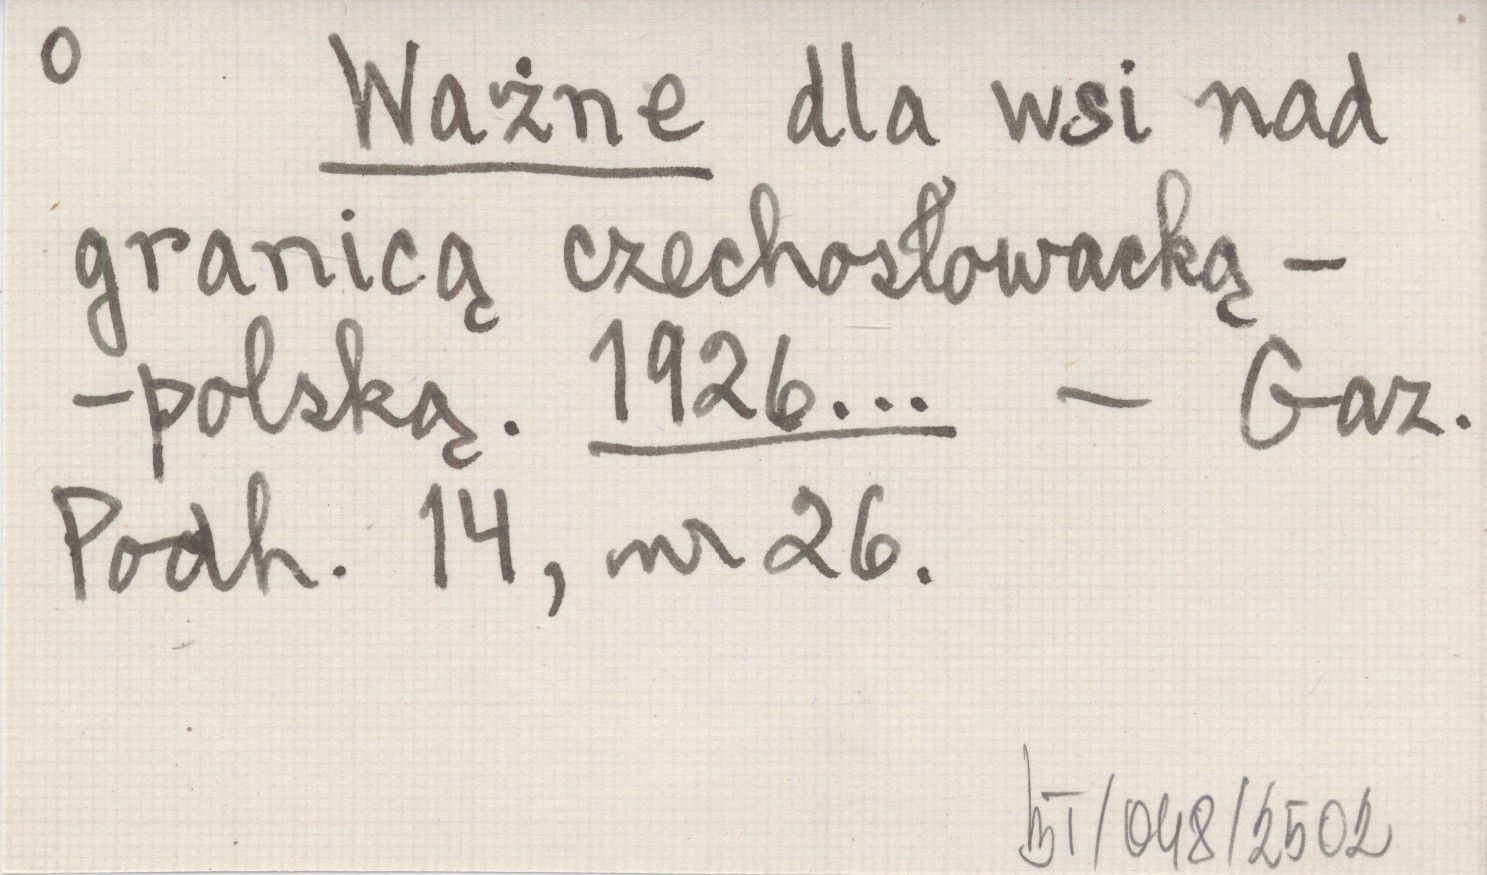 o Ważne dla wsi nad
granicą czechosłowacką -
- polską. 1926... - Gaz.
Podh. 14, nr 26.
/048/2502